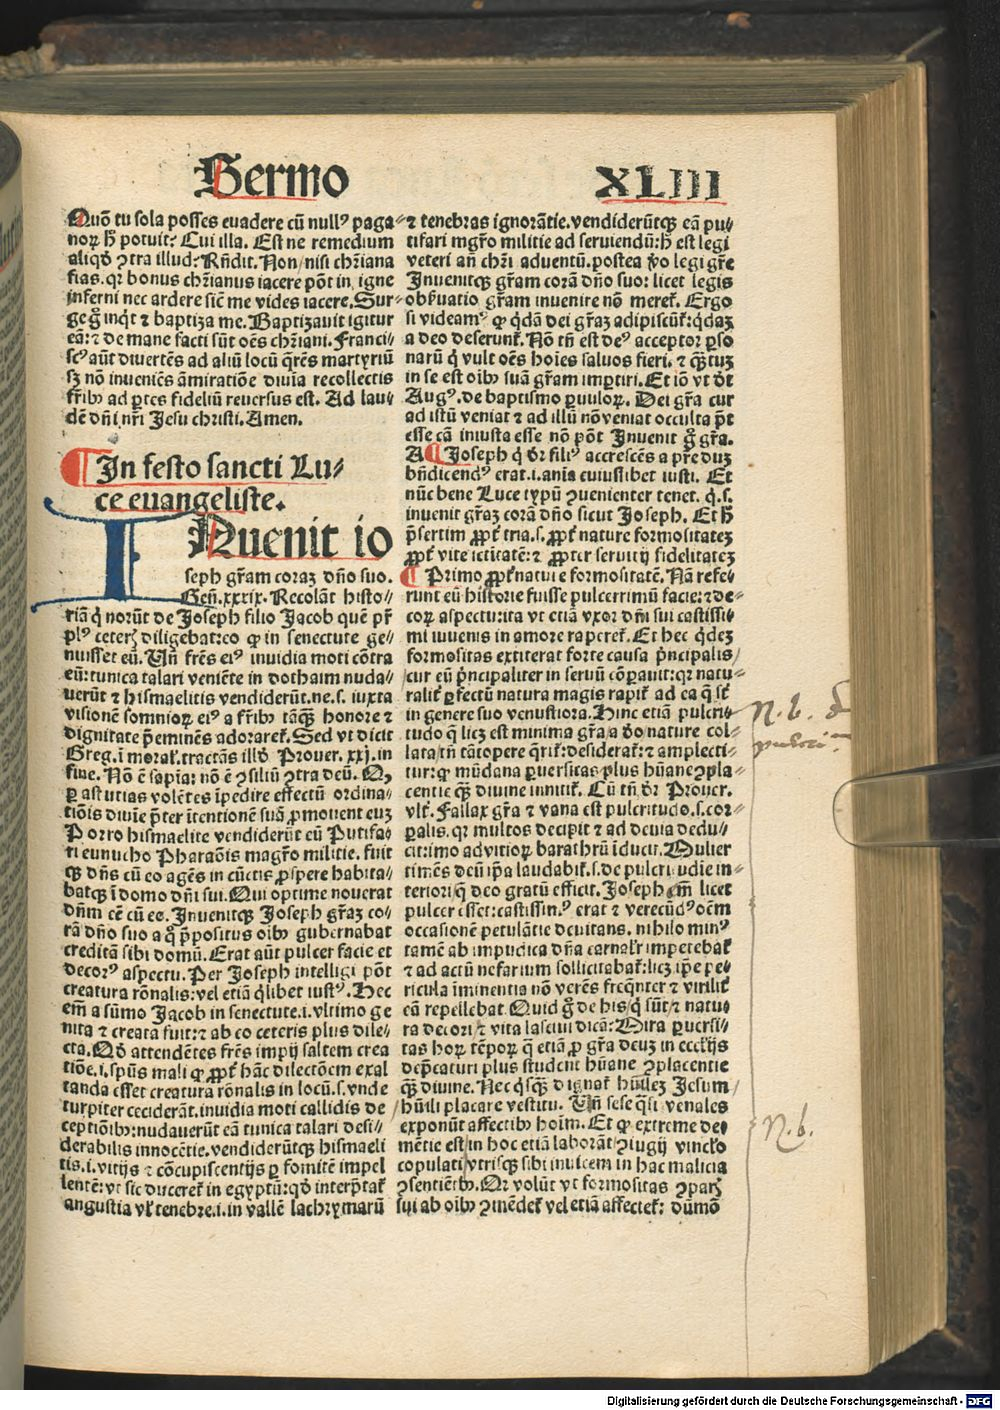 Sermo XLIII
Quō tu sola posses euadere cū nullꝰ paga⸗
noꝝ h̄ potuit? Cui illa. Est ne remedium
aliqd̛ ꝯtra illud? Rn̄dit. Non/nisi chr̄iana
fias. qꝛ bonus chr̄ianus iacere pōt in igne
inferni nec ardere sic̄ me vides iacere. Sur⸗
ge g̊ inq̇t ⁊ baptiza me. Baptizauit igitur
eā: ⁊ de mane facti sūt oēs chr̄iani. Franci⸗
scꝰ aūt diuertēs ad aliū locū q̄rēs martyriū
sꝫ nō inueniēs āmiratiōe diuīa recollectis
fr̄ibꝫ ad ꝑtes fideliū reuersus est. Ad lau⸗
dē dn̄i nr̄i Jesu christi. Amen.
¶ In festo sancti Lu⸗
ce euangeliste.
INuenit io
seph gr̄am coraꝫ dn̄o suo.
Gen̄. xxxix. Recolāt histo⸗
riā q̇ norūt de Joseph filio Jacob quē pr̄
plꝰ ceterꝭ diligebat: eo ꝙ in senectute ge⸗
nuisset eū. Vn̄ frēs eiꝰ inuidia moti cōtra
eū: tunica talari veniēte in dothaim nuda⸗
uerūt ⁊ hismaelitis vendiderūt. ne .s. iuxta
visionē somnioꝝ eiꝰ a fr̄ibꝫ tāqꝫ honore ⁊
dignitate p̄eminēs adoraret̛. Sed vt dicit
Greg. ī moral̛. tractās illd̛ Prouer. xxj. in
fine. Nō ē sapīa: nō ē ꝯsiliū ꝯtra deū. Qꝫ
ꝑ astutias volētes īpedire effectū ordina⸗
tiōis diuīe p̄ter ītentionē suā ꝓmouent euꝫ
Porro hismaelite vendiderūt eū Putifa⸗
ri eunucho Pharaōis magr̄o militie. fuit
qꝫ dn̄s cū eo agēs in cūctis ꝓspere habita⸗
batqꝫ ī domo dn̄i sui. Qui optime nouerat
dn̄m eē cū eo. Inuenitqꝫ Joseph gr̄aꝫ co⸗
rā dn̄o suo a q̊ p̄positus oībꝫ gubernabat
creditā sibi domū. Erat aūt pulcer facie et
decorꝰ aspectu. Per Joseph intelligi pōt
creatura rōnalis: vel etiā q̇libet iustꝰ. Hec
em̄ a sūmo Jacob in senectute .i. vltimo ge
nita ⁊ creata fuit: ⁊ ab eo ceteris plus dile⸗
cta. Qd̛ attendētes frēs impij saltem crea
tiōe .i. spūs mali ꝙ ꝓpt̛ hāc dilectōem exal
tanda esset creatura rōnalis in locū .s. vnde
turpiter ceciderāt. inuidia moti callidis de
ceptiōibꝫ: nudauerūt eā tunica talari desi⸗
derabilis innocētie. vendiderūtqꝫ hismaeli
tis .i. vitijs ⁊ cōcupiscentijs ꝑ fomitē impel
lentē: vt sic duceret̛ in egyptū: qd̛ interp̄tat̛
angustia vl̛ tenebre .i. in vallē lachrymarū
⁊ tenebras ignorātie. vendiderūtqꝫ eā pu⸗
tifari mgr̄o militie ad seruiendū: h̄ est legi
veteri an̄ chr̄i aduentū. postea v̊o legi gr̄e
Inuenitqꝫ gr̄am corā dn̄o suo: licet legis
obseruatio gr̄am inuenire nō meret̛. Ergo
si videamꝰ ꝙ q̇dā dei gr̄aꝫ adipiscūt̛: q̇daꝫ
a deo deserunt̛. Nō tn̄ est deꝰ acceptor ꝑso
narū q̇ vult oēs hoīes saluos fieri. ⁊ qꝫtuꝫ
in se est oībꝫ suā gr̄am imꝑtiri. Et iō vt dt̄
Augꝰ. de baptismo ꝑuuloꝝ. Dei gr̄a cur
ad istū veniat ⁊ ad illū nō veniat occulta p̄t
esse cā iniusta esse nō pōt Inuenit g̊ gr̄a.
A ¶ Joseph q̇ dr̄ filiꝰ accrescēs a pr̄e duꝫ
bn̄dicendꝰ erat .i. anīa cuiuslibet iusti. Et
nūc bene Luce typū ꝯuenienter tenet. q̇ .s.
inuenit gr̄aꝫ corā dn̄o sicut Joseph. Et h̄
p̄sertim ꝓpt̛ tria .s. ꝓpt̛ nature formositateꝫ
ꝓpt̛ vite ... ⁊ ꝓpter seruitij fidelitateꝫ
¶ Primo ꝓpt̛ nature formositatē. Nā refe⸗
runt eū historie fuisse pulcerrimū facie: ⁊ de⸗
coꝝ aspectu: ita vt etiā vxor dn̄i sui castissi⸗
mi iuuenis in amore raperet̛. Et hec q̇deꝫ
formositas extiterat forte causa p̄ncipalis/
cur eū p̄ncipaliter in seruū cōꝑauit: qꝛ natu⸗
ralit̛ ꝑfectū natura magis rapit̛ ad ea q̄ st̄
in genere suo venustiora. Hinc etiā pulcri⸗
tudo q̄ licꝫ est minima gr̄a a deo nature col⸗
lata/tn̄ tātopere q̄rit̛: desiderat̛: ⁊ amplecti⸗
tur: ꝙ mūdana ꝑuersitas plus hūane ꝯpla⸗
centie qꝫ diuine innitit̛. Cū tn̄ dr̄ Prouer.
vlt̛. Fallax gr̄a ⁊ vana est pulcritudo .s. cor⸗
ꝑalis. qꝛ multos decipit ⁊ ad deuia dedu⸗
cit: imo ad vitioꝝ barathrū īducit. Mulier
timēs deū ip̄a laudabit̛ .s. de pulcritudīe in⸗
teriori q̄ deo gratū efficit. Joseph em̄ licet
pulcer esset: castissimꝰ erat ⁊ verecūdꝰ oēm
occasionē petulātie deuitans. nihilo minꝰ
tamē ab impudica dn̄a carnalr̄ impetebat̛
⁊ ad actū nefarium sollicitabat̛: licꝫ ip̄e pe⸗
ricula īminentia nō verēs freq̄nter ⁊ virilit̛
eā repellebat. Quid g̊ de his/q̇ sūt/⁊ natu
ra decori/⁊ vita lasciui dicā? Mira ꝑuersi⸗
tas hoꝝ tēpoꝝ q̄ etiā ꝓ gr̄a deuꝫ in eccl̛ijs
dep̄caturi plus student hūane ꝯplacentie
qꝫ diuine. Nec q̇sqꝫ dignat̛ hūileꝫ Jesum/
hūili placare vestitu. Vn̄ sese q̄si venales
exponūt affectibꝫ hoīm. Et ꝙ extreme de⸗
mētie est/in hoc etiā laborāt ꝯiugij vinclo
copulati/vtrisqꝫ sibi inuicem in hac malicia
ꝯsentiētibꝫ. Qꝛ volūt vt formositas ꝯparꝭ
sui ab oībꝫ ꝯmēdet̛ vel etiā affectet̛: dūmō
N. b.
N. b.
Digitalisierung gefördert durch die Deutsche Forschungsgemeinschaft - DFG